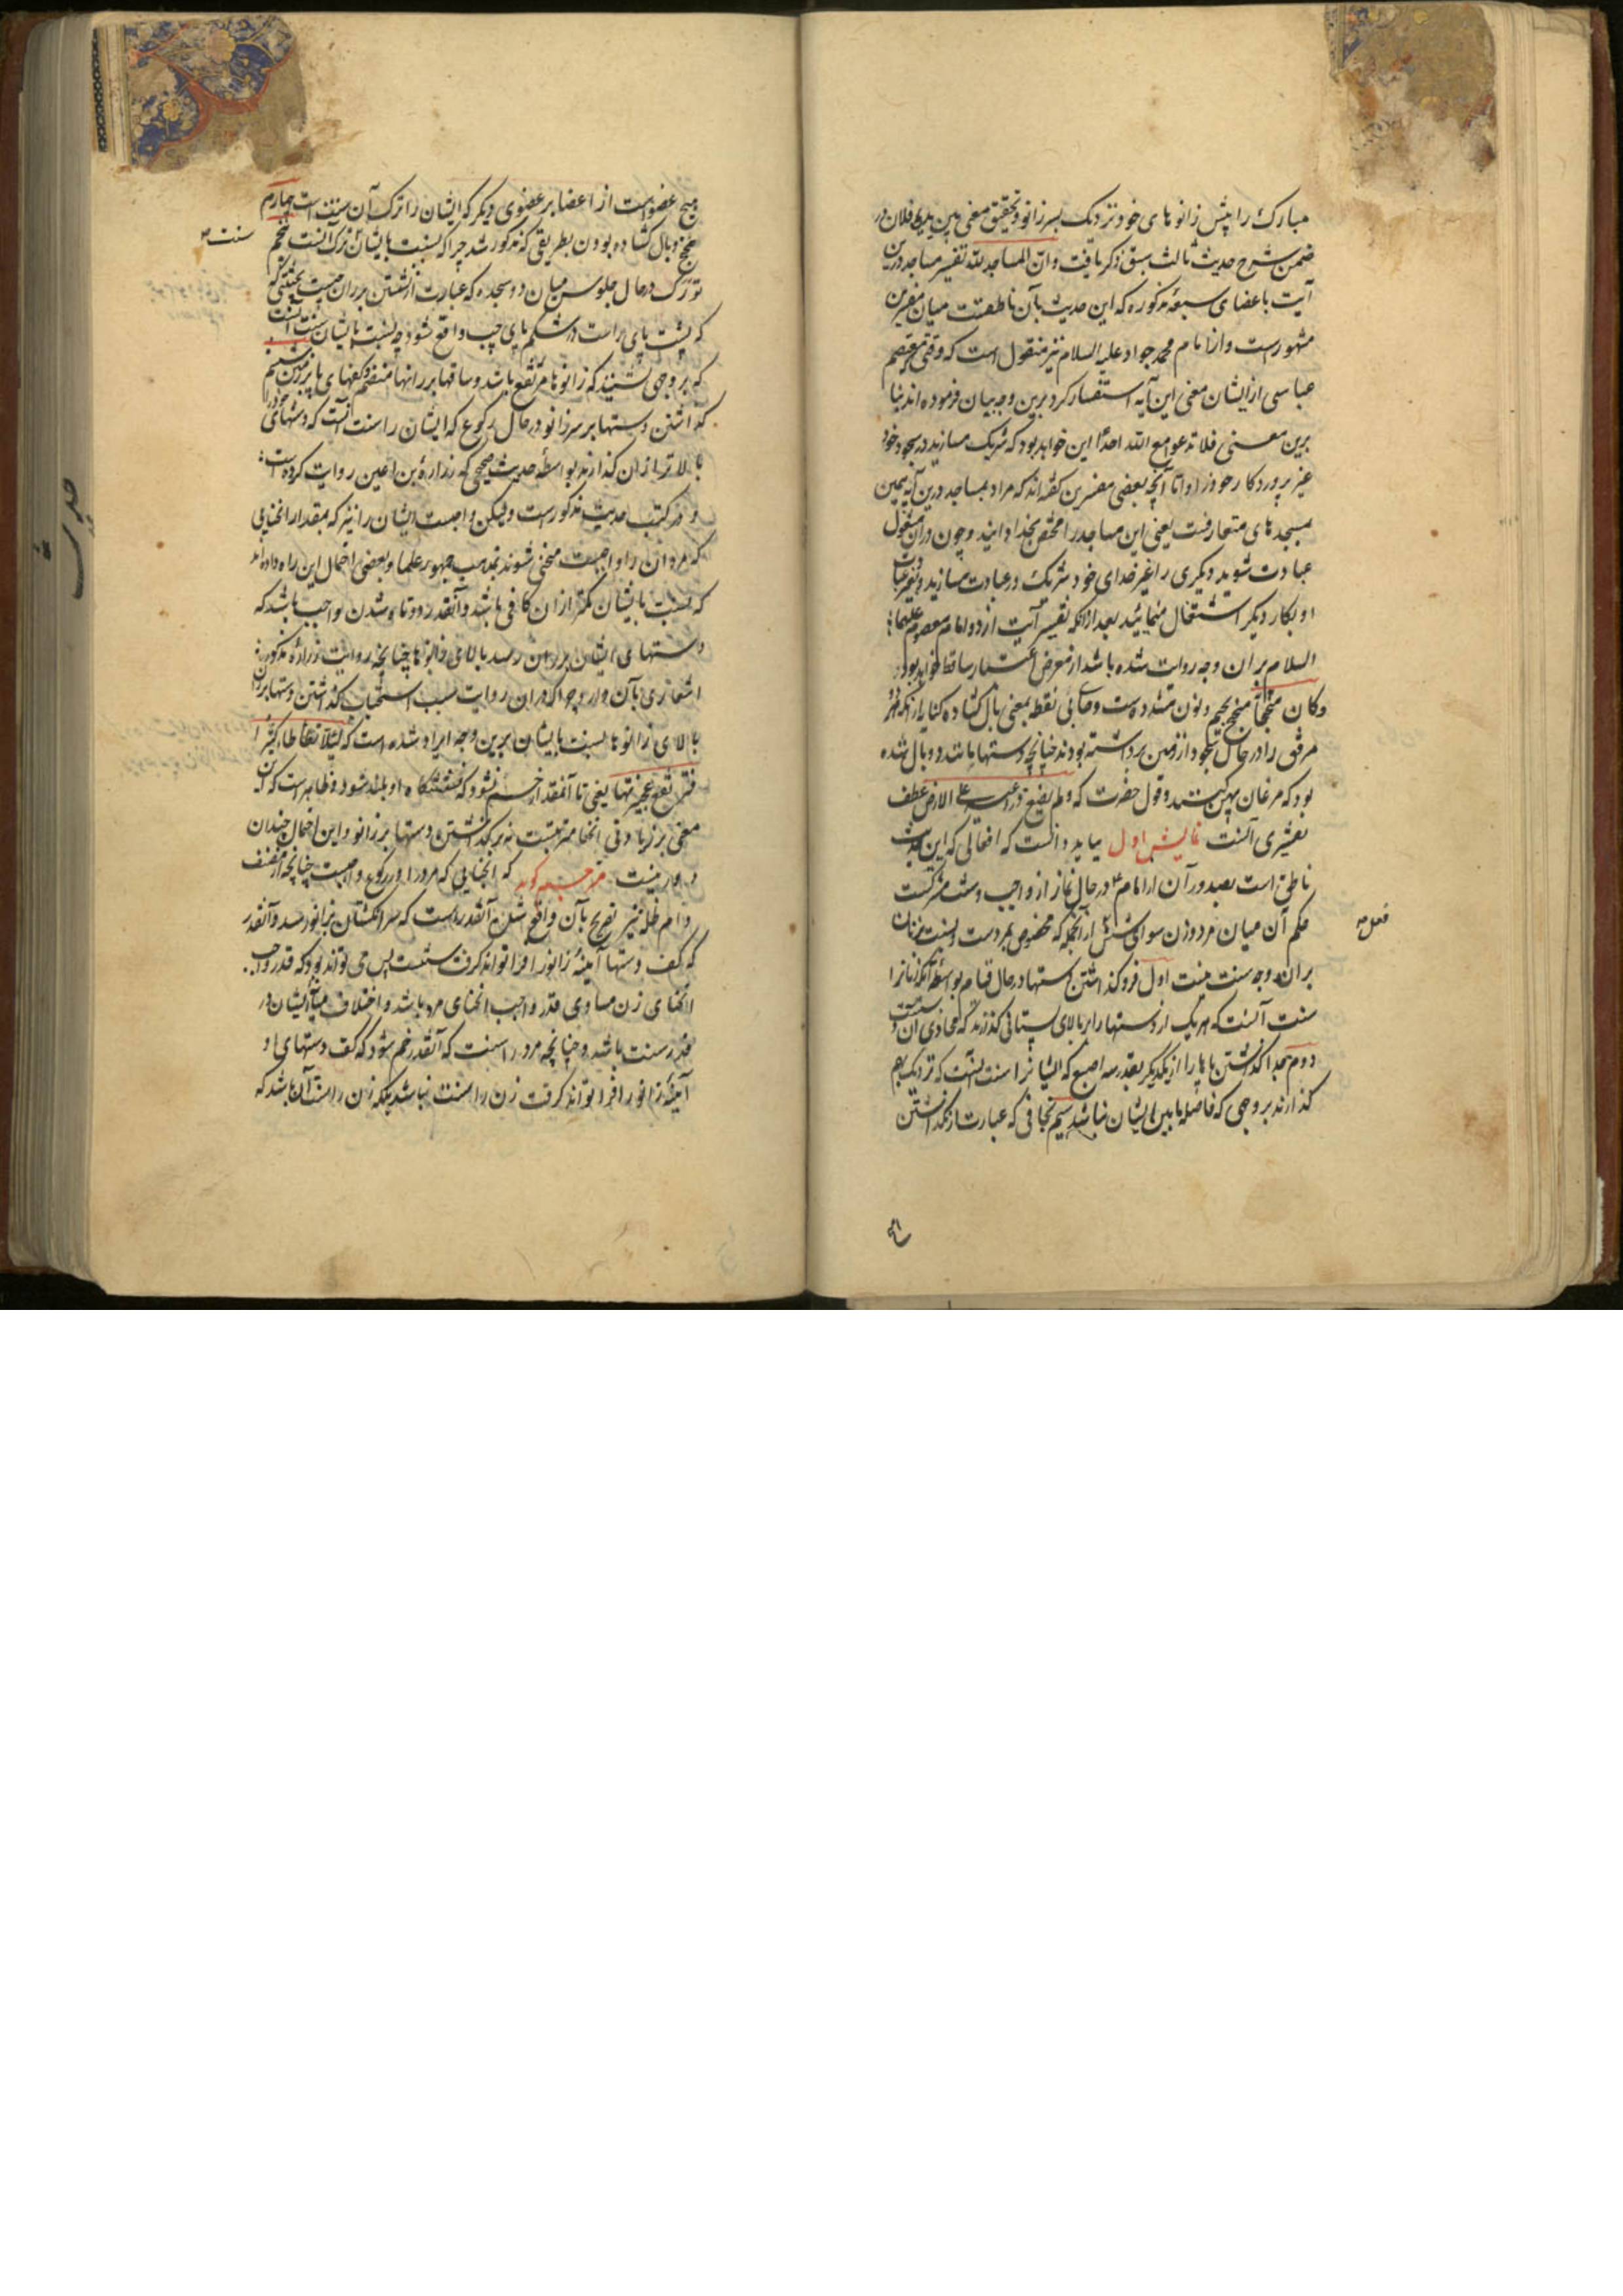 مبارک را پیش زانوهای خود نزدیک بسر زانو و تحقیق معنی بین یدیه فلان در
ضمن شرح حدیث ثالث سبق ذکر یافت و ان المساجد لله تفسیر مساجد درین
آیت باعضای سبعهٔ مذکوره که این حدیث بآن ناطقست میان مفسرین
مشهورست و از امام محمد جواد علیه السلام نیز منقول است که وقتی معتصم
عباسی از ایشان معنی این آیه استفسار کرد برین وجه بیان فرموده اند بنا
برین معنی فلا تدعوا مع الله احدا این خواهد بود که شریک مسازید در سجود خود
غیر پروردکار خود را و اما آنچه بعضی مفسرین کفته اند که مراد بمساجد درین آیه همین
مسجدهای متعارفست یعنی این مساجد را مختص بخدا دانید و چون در آن مشغول
عبادت شوید دیکری را غیر خدای خود شریک در عبادت مسازید و بغیر عبادت
او بکار دیکر اشتغال منمائید بعد از آنکه تفسیر آیت از دو امام معصوم علیهما
السلام بر آن وجه روایت شده باشد از معرض اعتبار ساقط خواهد بود
و کان متجنحا مجنح بجیم و نون مشدده است و حای بی نقطه بمعنی بال کشاده کنایه از آنکه هر دو
مرفق را در حال سجود از زمین برداشته بودند چنانچه دستها مانند دو بال شده
بود که مرغان پهن کنند و قول حضرت که و لم یضع ذراعیه علی الارض عطف
تفسیری آنست نمایش اول بباید دانست که افعالی که این حدیث
ناطق است بصدور آن از امام در حال نماز از واجب و سنت مشترکست
حکم آن میان مرد و زن سوای شش فعل از آنجمله که مخصوص بمردست و نسبت بزنان
بر آن وجه سنت نیست اول فرو کذاشتن دستها در حال قیام بواسطهٔ آنکه زنان را
سنت آنست که هر یک از دستها را بر بالای پستانی کذارند که محاذی آن دست
دوم جدا کذاشتن پاها را از یکدیکر بقدر سه اصبع که ایشانرا سنت آنست که نزدیک بهم
کذارند بروجهی که فاصله مابین ایشان نباشد سیم تجافی که عبارت از نکذاشتن
هیچ عضویست از اعضا بر عضوی دیکر که ایشان را ترک آن سنت است چهارم
مجنح و بال کشاده بودن بطریقی که مذکور شد چرا که نسبت بایشان ترک آن سنت پنجم
تورک در حال جلوس میان دو سجده که عبارت از نشستن بر ران چپست بحیثیتی که
که پشت پای راست در شکم پای چپ واقع شود چه نسبت بایشان سنت آنست
که بروجهی نشینند که زانوها مرتفع باشد و ساقها بر رانها منضم و کفهای پا بر زمین ششم
کذاشتن دستها بر سر زانو در حال رکوع که ایشان را سنت آنست که دستهای خود را
بالاتر از آن کذارند بواسطه حدیث صحیحی که زراره بن اعین روایت کرده است
و در کتب حدیث مذکورست و لیکن واجبست ایشان را نیز که بمقدار انحنایی
که مردان را واجبست منحنی شوند بمذهب جمهور علما و بعضی احتمال این راه داده اند
که نسبت بایشان کمتر از آن کافی باشد و آنقدر دوتا شدن واجب باشد که
دستهای ایشان بر ران رسد بالای زانوها چنانچه روایت زراره مذکوره
اشعاری بآن دارد چرا که در آن روایت سبب استحباب کذاشتن دستها بر
بالای زانوها نسبت بایشان برین وجه ایراد شده است که لئلا تتطأطأ کثیرا
فترتفع عجیزتها یعنی تا آنقدر خم نشود که نشستگاه او بلند شود و ظاهرست که این
معنی بر زیادتی انحنا مترتبست نه بر کذاشتن دستها بر زانو و این احتمال چندان
دور نیست مترجم کوید که انحنایی که مرد را در رکوع واجبست چنانچه از مصنف
دام ظله نیز تصریح بآن واقع شده آنقدرست که سر انکشتان بزانو رسد و آنقدر
که کف دستها آینهٔ زانو را فرا تواند کرفت سنتست پس می تواند بود که قدر واجب
انحنای زن مساوی قدر واجب انحنای مرد باشد و اختلاف میان ایشان در
قدر سنت باشد و چنانچه مرد را سنت که آنقدر خم شود که کف دستهای او
آینهٔ زانو را فرا تواند کرفت زن را سنت نباشد بلکه زن را سنت آن باشد که
سنت
فعل
حدیث